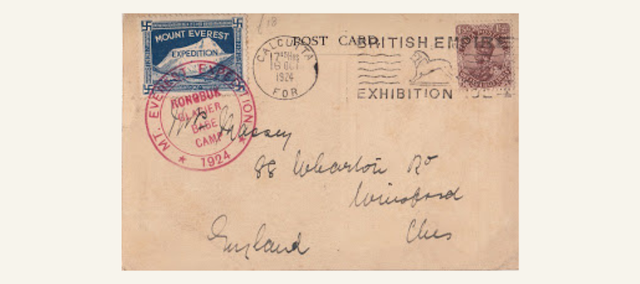 MOUNT EVEREST
EXPEDITION
MT. EVEREST EXPEDITION
RONGBUK
GLACIER
BASE
CAMP
1924
CALCUTTA
OCT
1924
POST CARD
BRITISH EMPIRE
EXHIBITION
Massey
88 Wharton Rd
Winsford
Ches
England